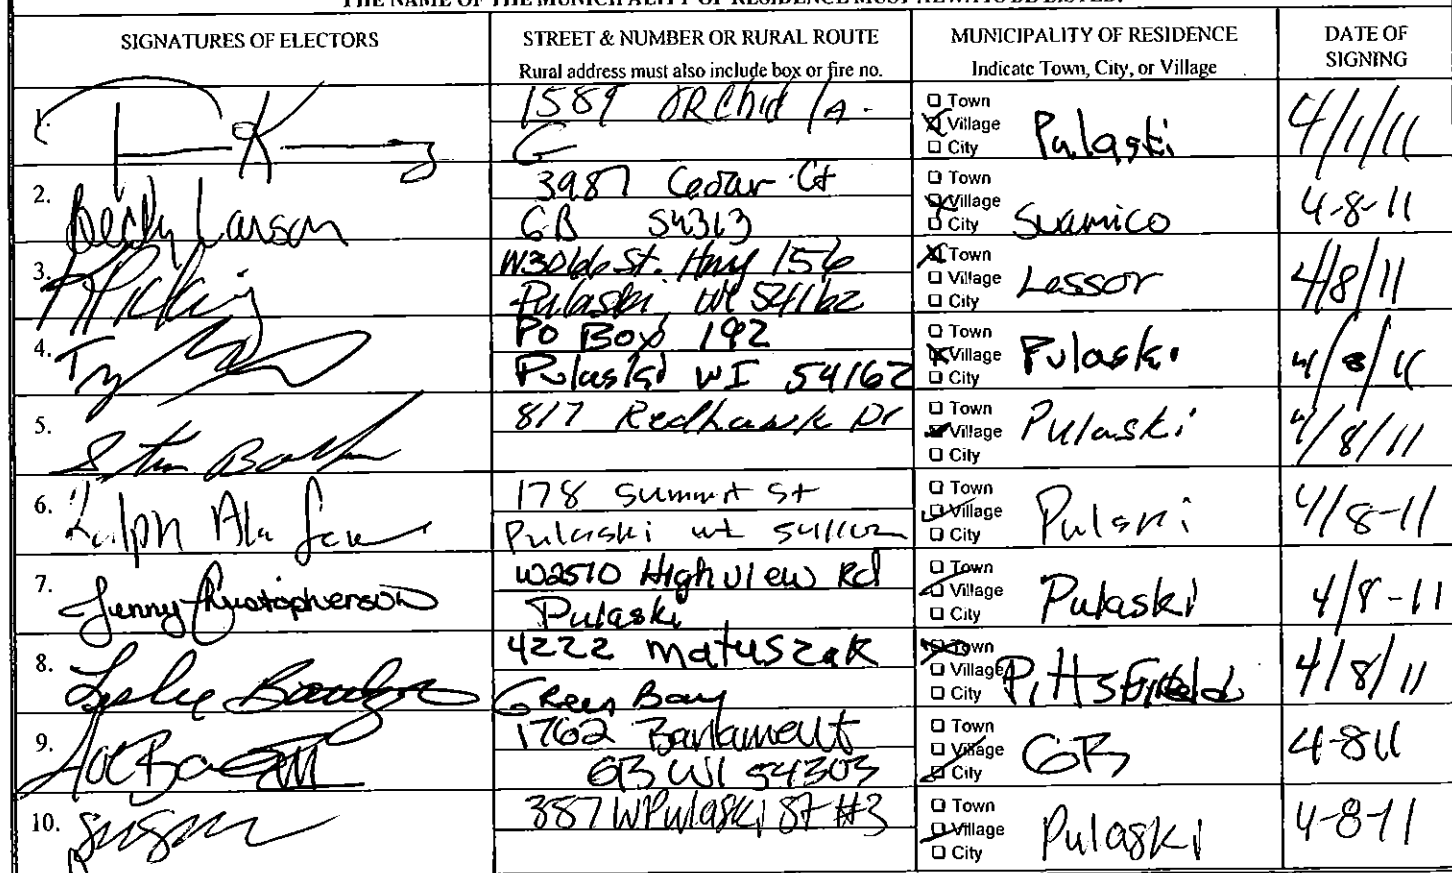 THE NAME OF THE MUNICIPALITY OF RESIDENCE MUST ALWAYS BE LISTED.
SIGNATURES OF ELECTORS
STREET & NUMBER OR RURAL ROUTE
Rural address must also include box or fire no.
MUNICIPALITY OF RESIDENCE
Indicate Town, City, or Village
DATE OF
SIGNING
1.
1589 ORchid la.
G
Town
Village
City
Pulaski
4/1/11
2.
Becky Larson
3987 Cedar Ct
GB 54313
Town
Village
City
Suamico
4-8-11
3.
W3066 St. Hwy 156
Pulaski, WI 54162
Town
Village
City
Lessor
4/8/11
4.
PO Box 192
Pulaski WI 54162
Town
Village
City
Pulaski
4/8/11
5.
817 Redhawk Dr
Town
Village
City
Pulaski
4/8/11
6.
Ralph
178 Summit St
Pulaski WI 54162
Town
Village
City
4/8-11
7.
Jenny Christopherson
W2570 Highview Rd
Pulaski
Town
Village
City
Pulaski
4/8-11
8.
Leslie
4222 Matuszak
Green Bay
Town
Village
City
Pittsfield
4/8/11
9.
1762
GB WI 54303
Town
Village
City
GB
4-8 11
10.
387 W Pulaski St #3
Town
Village
City
Pulaski
4-8-11